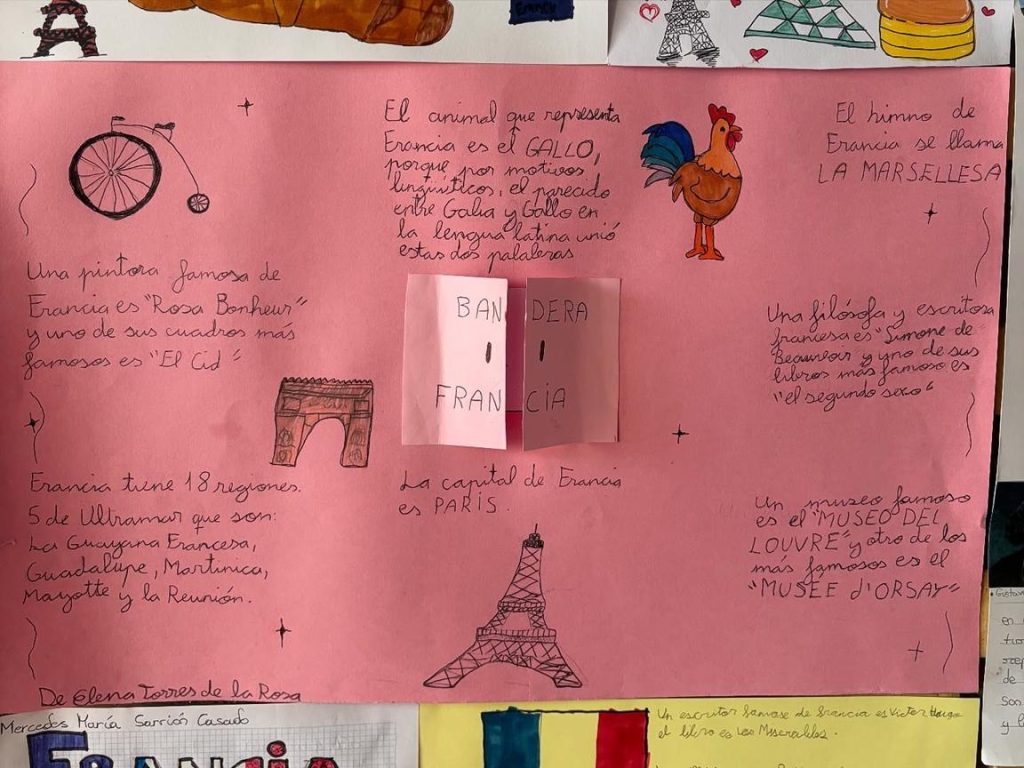 El animal que representa
Francia es el GALLO,
porque por motivos
lingüísticos, el parecido
entre Galia y Gallo en
la lengua latina unió
estas dos palabras
El himno de
Francia se llama
LA MARSELLESA
Una pintora famosa de
Francia es "Rosa Bonheur"
y uno de sus cuadros más
famosos es "El Cid"
BANDERA
FRANCIA
Una filósofa y escritora
francesa es "Simone de
Beauvoir" y uno de sus
libros más famoso es
"el segundo sexo"
Francia tiene 18 regiones.
5 de Ultramar que son:
La Guayana Francesa,
Guadalupe, Martinica,
Mayotte y la Reunión.
La capital de Francia
es PARÍS.
Un museo famoso
es el "MUSEO DEL
LOUVRE" y otro de los
más famosos es el
"MUSÉE d'ORSAY"
De Elena Torres de la Rosa
Mercedes María Sarrión Casado
FRANCIA
Un escritor famoso de francia es Victor Hugo
el libro es Los Miserables.